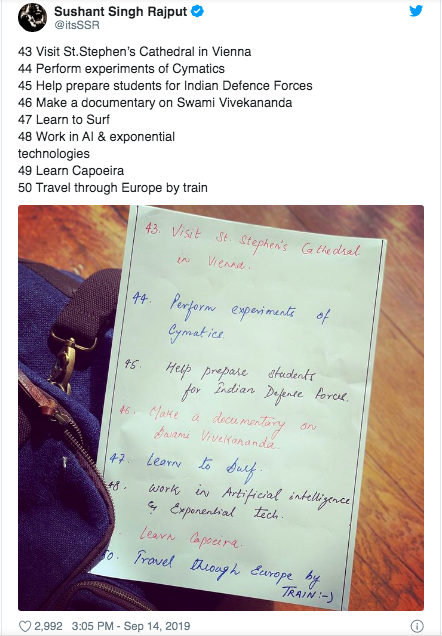 Sushant Singh Rajput
@itsSSR
43 Visit St.Stephen's Cathedral in Vienna
44 Perform experiments of Cymatics
45 Help prepare students for Indian Defence Forces
46 Make a documentary on Swami Vivekananda
47 Learn to Surf
48 Work in AI & exponential
technologies
49 Learn Capoeira
50 Travel through Europe by train
43. Visit St. Stephen's Cathedral
in Vienna.
44. Perform experiments of
Cymatics
45. Help prepare students
for Indian Defense forces.
46. Make a documentary on
Swami Vivekananda.
47. Learn to Surf.
48. Work in Artificial intelligence
& Exponential tech.
. Learn Capoeira.
50. Travel through Europe by
TRAIN :-)
2,992 3:05 PM - Sep 14, 2019